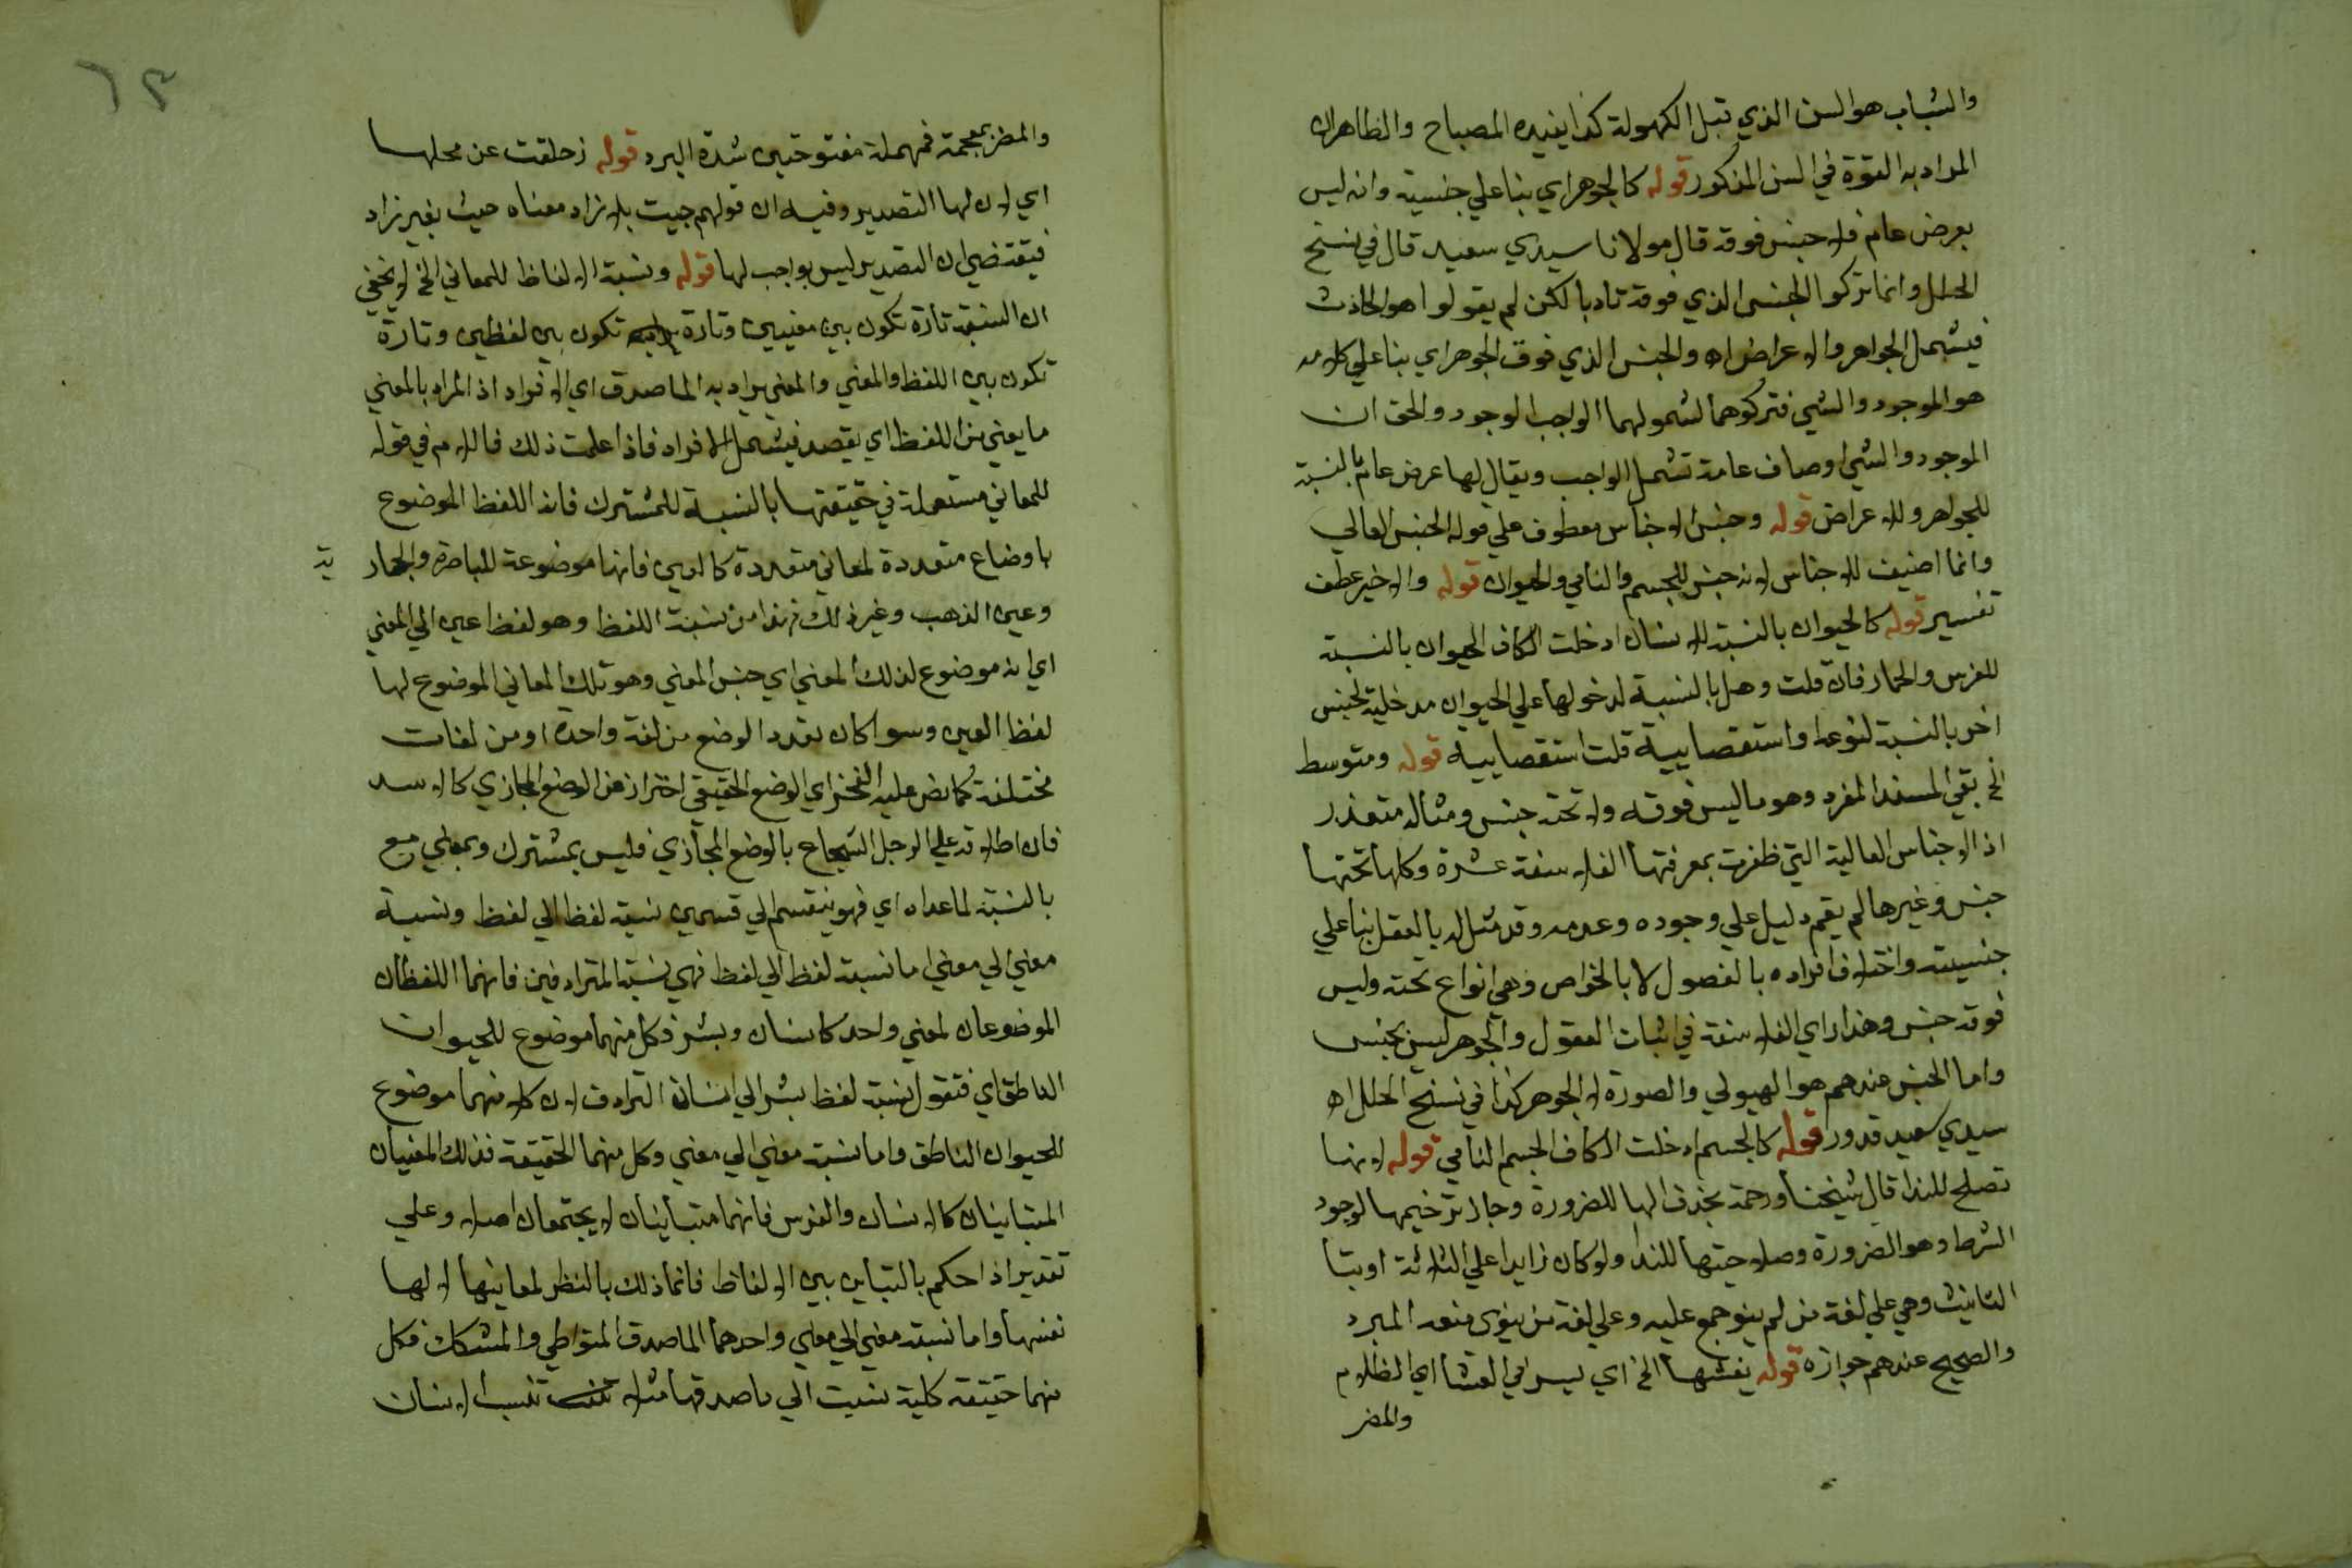 والشباب هو السن الذي قبل الكهولة كذا يفيده المصباح والظاهر ان
المراد به القوة في السن المذكور قوله كالجوهر اي بنا علي جنسيته وانه ليس
بعرض عام فلا جنس فوقه قال مولانا سيدي سعيد قال في نسخ
الحلل وانما تركوا الجنس الذي فوقه تادبا لكن لم يقولوا هو الحادث
فيشمل الجواهر والاعراض اه والجنس الذي فوق الجوهر اي بنا علي كلامه
هو الموجود والشي فتركوهما لشمولهما الواجب الوجود والحق ان
الموجود والشي اوصاف عامة تشمل الواجب ويقال لها عرض عام بالنسبة
للجواهر وللاعراض قوله وجنس الاجناس معطوف علي قوله الجنس العالي
وانما اضيف للاجناس لانه جنس للجسم والنامي والحيوان قوله والاخير عطف
تفسير قوله كالحيوان بالنسبة للانسان ادخلت الكاف الحيوان بالنسبة
للفرس والحمار فان قلت وهل بالنسبة لدخولها علي الحيوان مدخلية لجنس
اخر بالنسبة لنوعه او استقصاييه قلت استقصاييه قوله ومتوسط
الخ بقي المنفرد وهو ما ليس فوقه ولا تحته جنس ومثاله متعذر
اذ الاجناس العالية التي ظفرت بمعرفتها الفلاسفة عشرة وكلها تحتها
جنس وغيرها لم يقم دليل علي وجوده وعدمه وقد مثل له بالعقل بنا علي
جنسيته واختلاف افراده بالفصول لا بالخواص وهي انواع تحته وليس
فوقه جنس وهذا راي الفلاسفة في اثبات العقول والجوهر ليس بجنس
واما الجنس عندهم هو الهيولي والصورة لا الجوهر كذا في نسخ الحلل اه
سيدي سعيد قدور قوله كالجسم ادخلت الكاف الجسم النامي قوله لانها
تصلح للندا قال شيخنا ورحمة بحذف الها للضرورة وجاز ترخيمها لوجود
الشرط وهو الضرورة وصلاحيتها للندا ولو كان زايدا علي الثلاثة او بتا
التانيث وهي علي لغة من لم ينو جمع عليه وعلي لغة من ينوي منعه المبرد
والصحيح عندهم جوازه قوله يغشها الخ اي يسر في العشا اي الظلام
والمضر
٦٣
والمضر بمعجمة فمهملة مفتوحتين شدة البرد قوله زحلقت عن محلها
اي لان لها التصدير وفيه ان قولهم جيت بلا زاد معناه حيث بغير زاد
فيقتضي ان التصدير ليس بواجب لها قوله ونسبة الالفاظ للمعاني الخ لا يخفي
ان النسبة تارة تكون بين معنيين وتارة تكون بين لفظين وتارة
تكون بين اللفظ والمعني والمعني يراد به الماصدق اي الافراد اذ المراد بالمعني
ما يعني من اللفظ اي يقصد فيشمل الافراد فاذا علمت ذلك فاللام في قوله
للمعاني مستعملة في حقيقتها بالنسبة للمشترك فانه اللفظ الموضوع
باوضاع متعددة لمعاني متعددة كالعين فانها موضوعة للباصرة والجار
ية
وعين الذهب وغير ذلك فهذا من نسبة اللفظ وهو لفظ عين الي المعني
اي انه موضوع لذلك المعني اي جنس المعني وهو تلك المعاني الموضوع لها
لفظ العين وسوا كان تعدد الوضع من لغة واحدة او من لغات
مختلفة كما نص عليه الفخر اي الوضع الحقيقي احتراز من الوضع المجازي كالاسد
فان اطلاقه علي الرجل الشجاع بالوضع المجازي فليس بمشترك وبمعني مع
بالنسبة لما عداه اي فهو ينقسم الي قسمين نسبة لفظ الي لفظ ونسبة
معني الي معني اما نسبة لفظ الي لفظ فهي نسبة المترادفين فانهما اللفظان
الموضوعان لمعني واحد كانسان وبشر فكل منهما موضوع للحيوان
الناطق اي فتقول نسبة لفظ بشر الي انسان الترادف لان كلا منهما موضوع
للحيوان الناطق واما نسبة معني الي معني وكل منهما الحقيقة فذلك المعنيان
المتباينان كالانسان والفرس فانهما متباينان لا يجتمعان اصلا وعلي
تقدير اذا حكم بالتباين بين الالفاظ فانما ذلك بالنظر لمعانيها لا لها
نفسها واما نسبة معني الي معني واحدهما الماصدق المتواطي والمشكك فكل
منهما حقيقة كلية نسبت الي ماصدقها مثلا تنسب الانسان